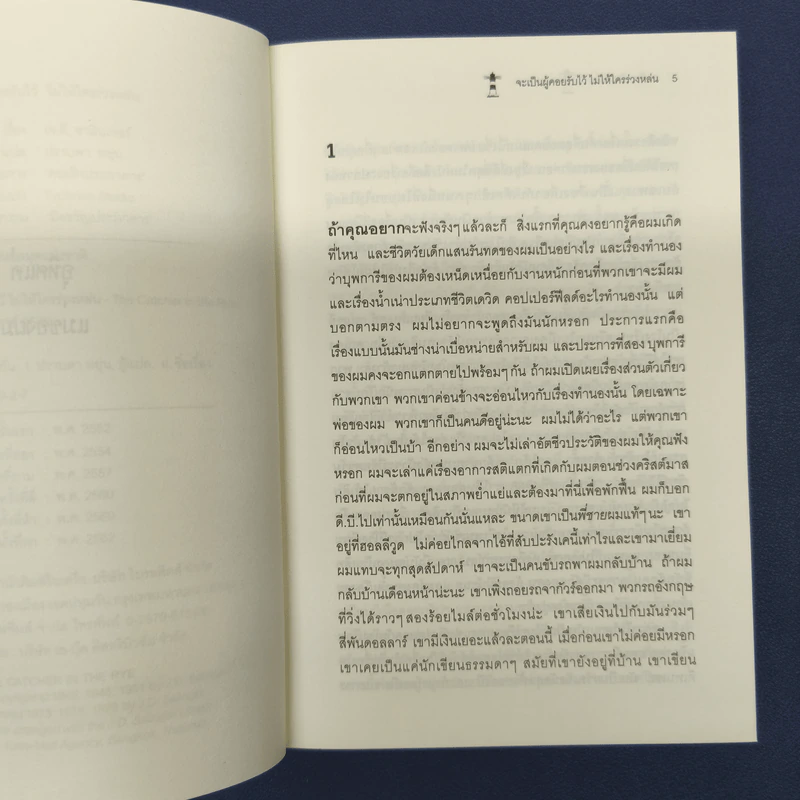 จะเป็นผู้คอยรับไว้ ไม่ให้ใครร่วงหล่น 5
1
ถ้าคุณอยากจะฟังจริงๆ แล้วละก็ สิ่งแรกที่คุณคงอยากรู้คือผมเกิด
ที่ไหน และชีวิตวัยเด็กแสนรันทดของผมเป็นอย่างไร และเรื่องทำนอง
ว่าบุพการีของผมต้องเหน็ดเหนื่อยกับงานหนักก่อนที่พวกเขาจะมีผม
และเรื่องน้ำเน่าประเภทชีวิตเดวิด คอปเปอร์ฟีลด์อะไรทำนองนั้น แต่
บอกตามตรง ผมไม่อยากจะพูดถึงมันนักหรอก ประการแรกคือ
เรื่องแบบนั้นมันช่างน่าเบื่อหน่ายสำหรับผม และประการที่สอง บุพการี
ของผมคงจะอกแตกตายไปพร้อมๆ กัน ถ้าผมเปิดเผยเรื่องส่วนตัวเกี่ยว
กับพวกเขา พวกเขาค่อนข้างจะอ่อนไหวกับเรื่องทำนองนั้น โดยเฉพาะ
พ่อของผม พวกเขาก็เป็นคนดีอยู่น่ะนะ ผมไม่ได้ว่าอะไร แต่พวกเขา
ก็อ่อนไหวเป็นบ้า อีกอย่าง ผมจะไม่เล่าอัตชีวประวัติของผมให้คุณฟัง
หรอก ผมจะเล่าแค่เรื่องอาการสติแตกที่เกิดกับผมตอนช่วงคริสต์มาส
ก่อนที่ผมจะตกอยู่ในสภาพย่ำแย่และต้องมาที่นี่เพื่อพักฟื้น ผมก็บอก
ดี.บี.ไปเท่านั้นเหมือนกันนั่นแหละ ขนาดเขาเป็นพี่ชายผมแท้ๆ นะ เขา
อยู่ที่ฮอลลีวูด ไม่ค่อยไกลจากไอ้ที่สัปะรังเคนี้เท่าไรและเขามาเยี่ยม
ผมแทบจะทุกสุดสัปดาห์ เขาจะเป็นคนขับรถพาผมกลับบ้าน ถ้าผม
กลับบ้านเดือนหน้าน่ะนะ เขาเพิ่งถอยรถจากัวร์ออกมา พวกรถอังกฤษ
ที่วิ่งได้ราวๆ สองร้อยไมล์ต่อชั่วโมงน่ะ เขาเสียเงินไปกับมันร่วมๆ
สี่พันดอลลาร์ เขามีเงินเยอะแล้วละตอนนี้ เมื่อก่อนเขาไม่ค่อยมีหรอก
เขาเคยเป็นแค่นักเขียนธรรมดาๆ สมัยที่เขายังอยู่ที่บ้าน เขาเขียน